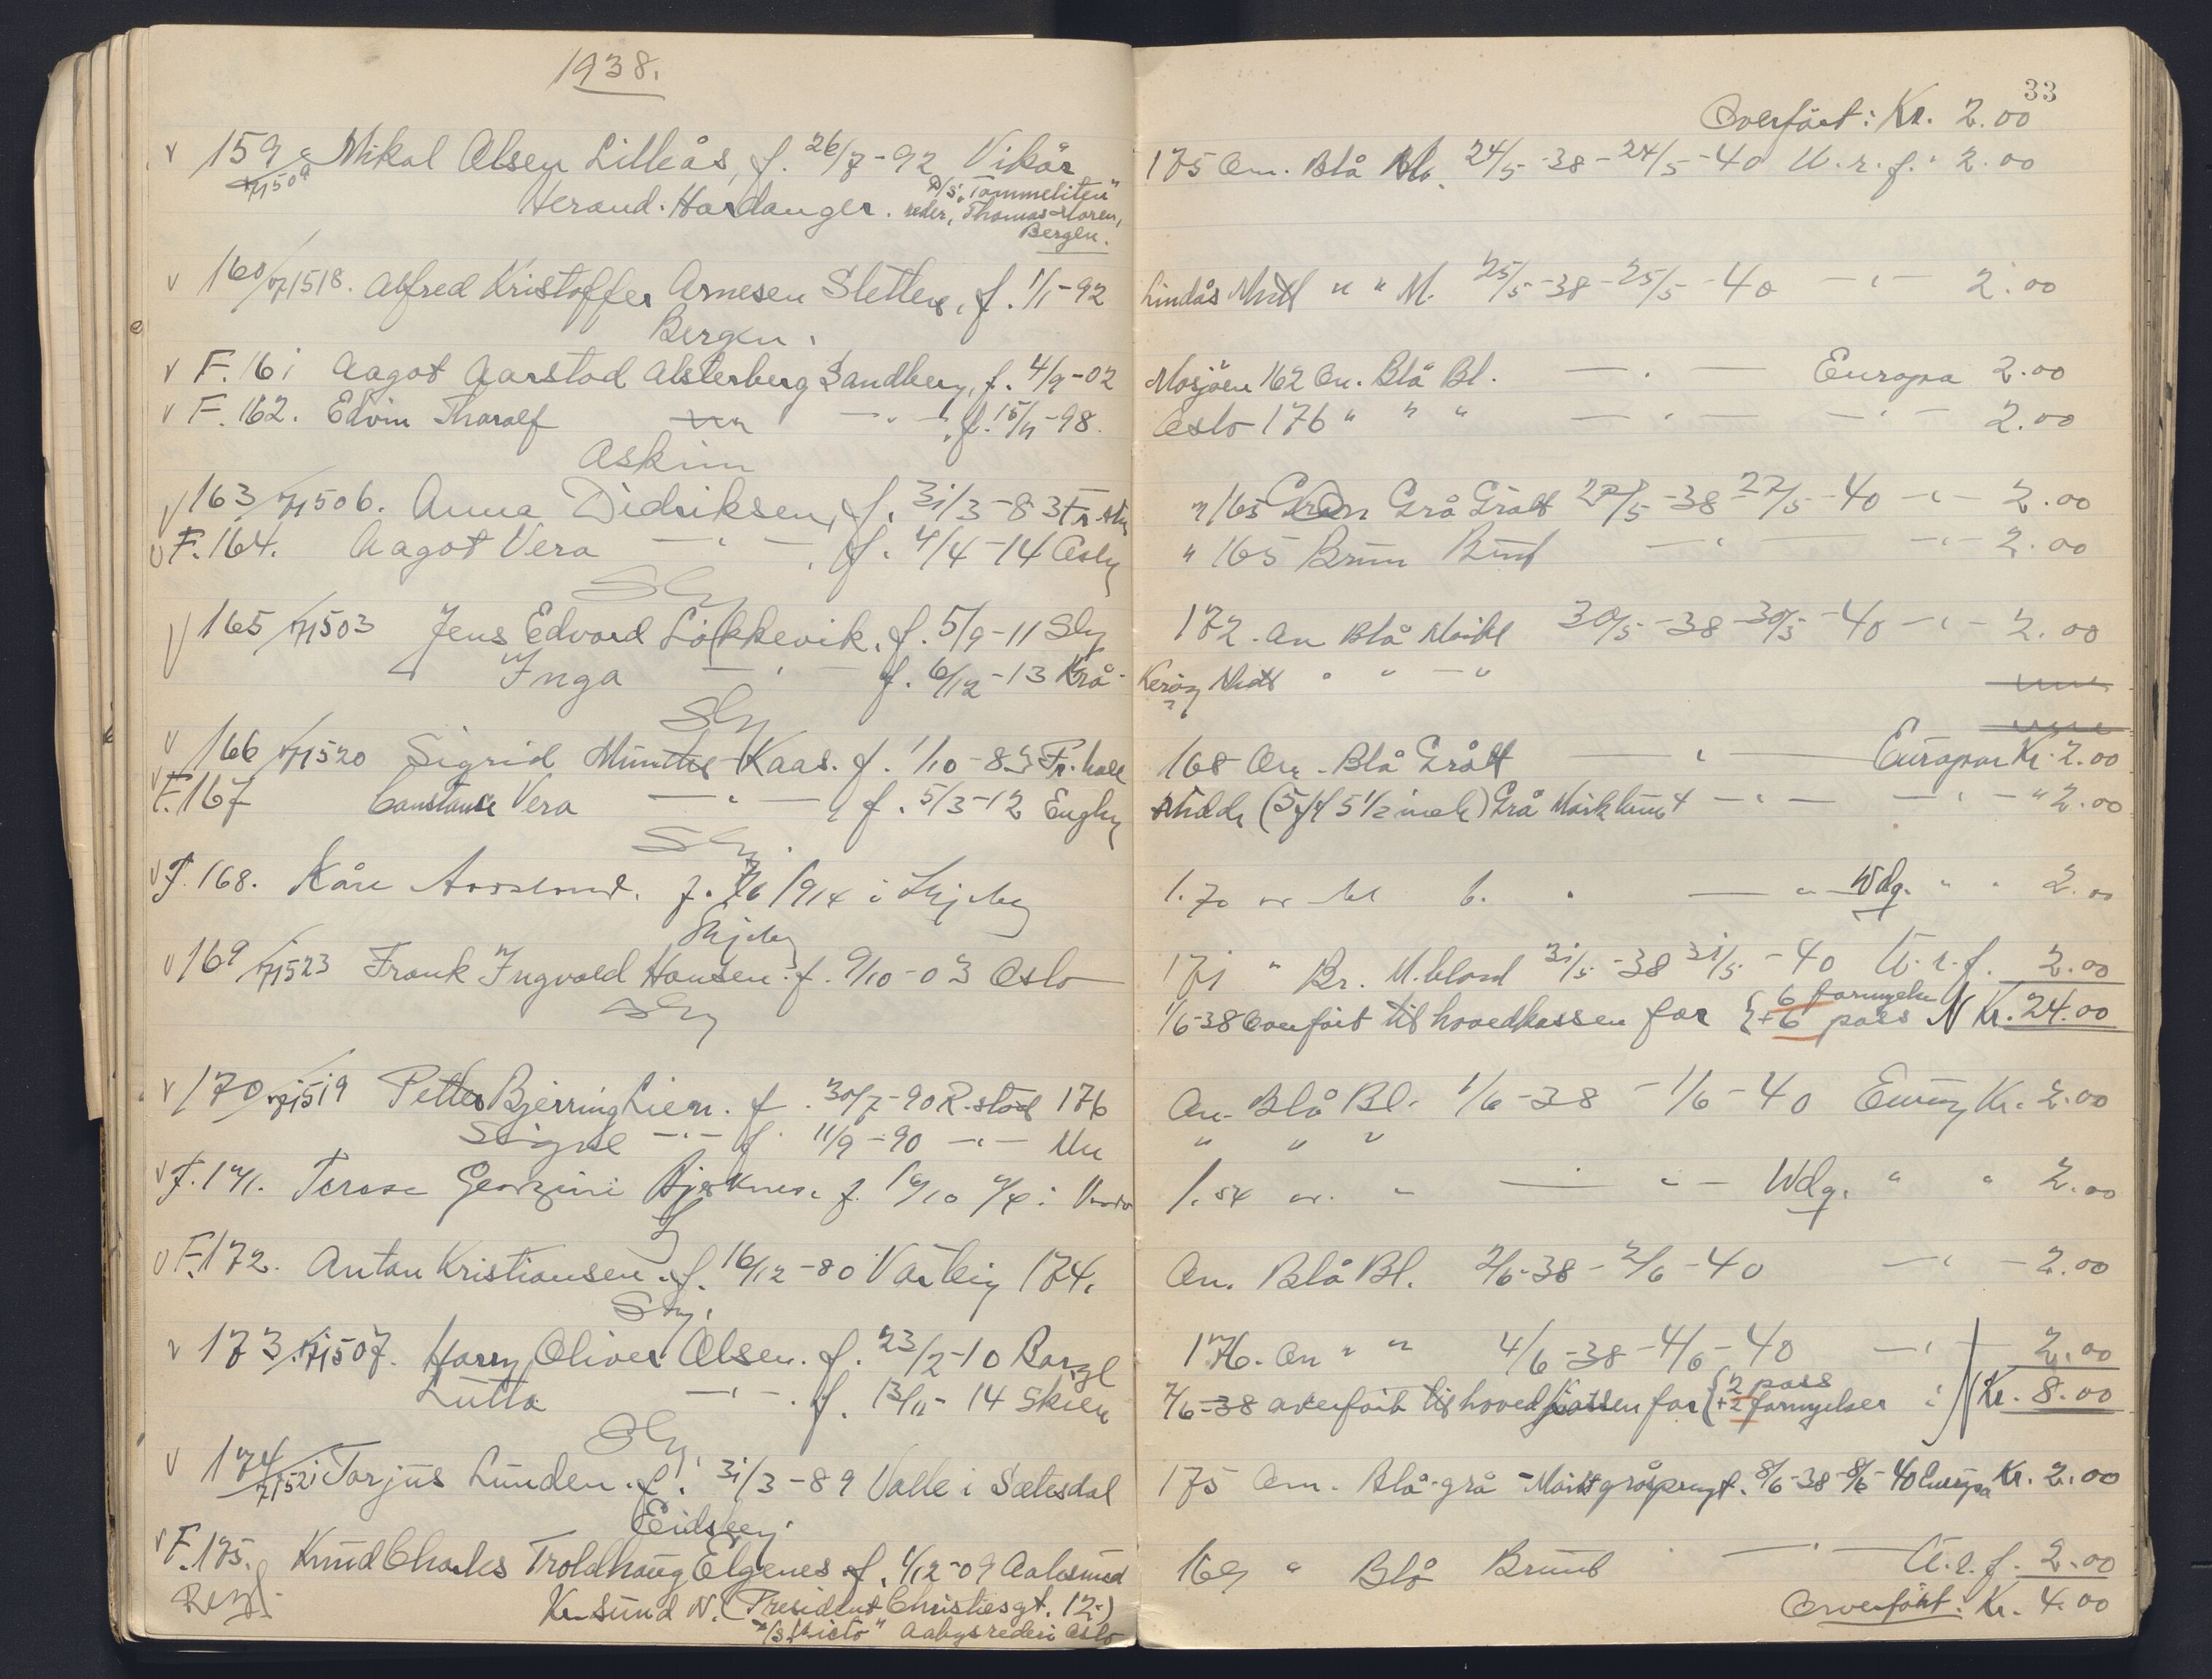 1938.
v 159 Mikal Olsen Lilleås, f. 26/7-92 Vikør
71509
P/S. "Tommeliten"
Herand. Hardanger. reder, Thomas
Bergen.
v 160/71518. Alfred Kristoffer Arnesen Sletten, f. 1/1-92
Bergen.
v F. 161 Aagot Aarstad Alsterberg Sandberg, f. 4/9-02
v F. 162. Edvin Tharalf —"— , f. 15/11-98.
Askim
163/71506. Anna Didriksen, f. 31/3-83
v F. 164. Aagot Vera —"— , f. 4/4-14 Oslo
165/71503 Jens Edvard Løkkevik, f. 5/9-11
Inga —"— f. 6/12-13 Kra-
v 166/71520 Sigrid Münthe-Kaas. f. 1/10-83 Fr.hald
F. 167 Constance Vera —"— , f. 5/3-12
v F. 168. Kåre 1914 i Skjeberg
Skjeberg
v 169/71523 Frank Ingvald Hansen. f. 9/10-03 Oslo
v 170/71519 Petter Bjerring Lien. f. 30/7-90 R.stad 176
Signe —"— f. 11/9-90 —"—
v F. 171.
v F. 172. Anton Kristiansen. f. 16/12-80 Varteig 174.
v 173/71507. Harry Oliver Olsen. f. 23/2-10 Borge
Lutta —"— . f. 13/11-14 Skien
v 174/71521 Tarjus Lunden. f. 31/3-89 Valle i Sætesdal
Eidsberg.
v F. 175. Knud Charles Troldhaug Elgenes f. 1/12-09 Aalesund
Kr.sund N. (President Christiesgt. 12.)
Aabys rederi Oslo
33
Overført: Kr. 2.00
175 Om. Blå Bl. 24/5-38-24/5-40 U.r.f. 2.00
Lindås Midd " " M. 25/5-38-25/5-40 —"— 2.00
Mosjøen 162 On. Blå Bl. —"— Europa 2.00
Oslo 176 " " " —"— —"— 2.00
" 165 Grå Grått 27/5-38 27/5-40 —"— 2.00
" 165 Brun Brunt —"— —"— 2.00
172. On Blå Mørkt 30/5-38-30/5-40 —"— 2.00
Kerøy Midd " " — "
168 On. Blå Grått —"— Europa Kr. 2.00
Midd. (5 fot 5 1/2 inch) Grå Mørkbrunt —"— —"— " 2.00
1.70 — " — Wdg. " " 2.00
171 " Br. M.blond 31/5-38 31/5-40 U.r.f. 2.00
1/6-38 Overført til hovedkassen for {6 fornyelser + 6 pass Kr. 24.00
On. Blå Bl. 1/6-38 - 1/6-40 Kr. 2.00
" " "
1.54 " — " — Wdg. " " 2.00
On. Blå Bl. 2/6-38-2/6-40 —"— 2.00
176. On " " 4/6-38-4/6-40 —"— 2.00
7/6-38 overført til hovedkassen for {2 pass + 2 fornyelser : Kr. 8.00
175 Om. Blå-grå - Mørkt gråsprengt. 8/6-38-8/6-40 Europa Kr. 2.00
169 " Blå Brunt —"— U.r.f. 2.00
Overført: Kr. 4.00